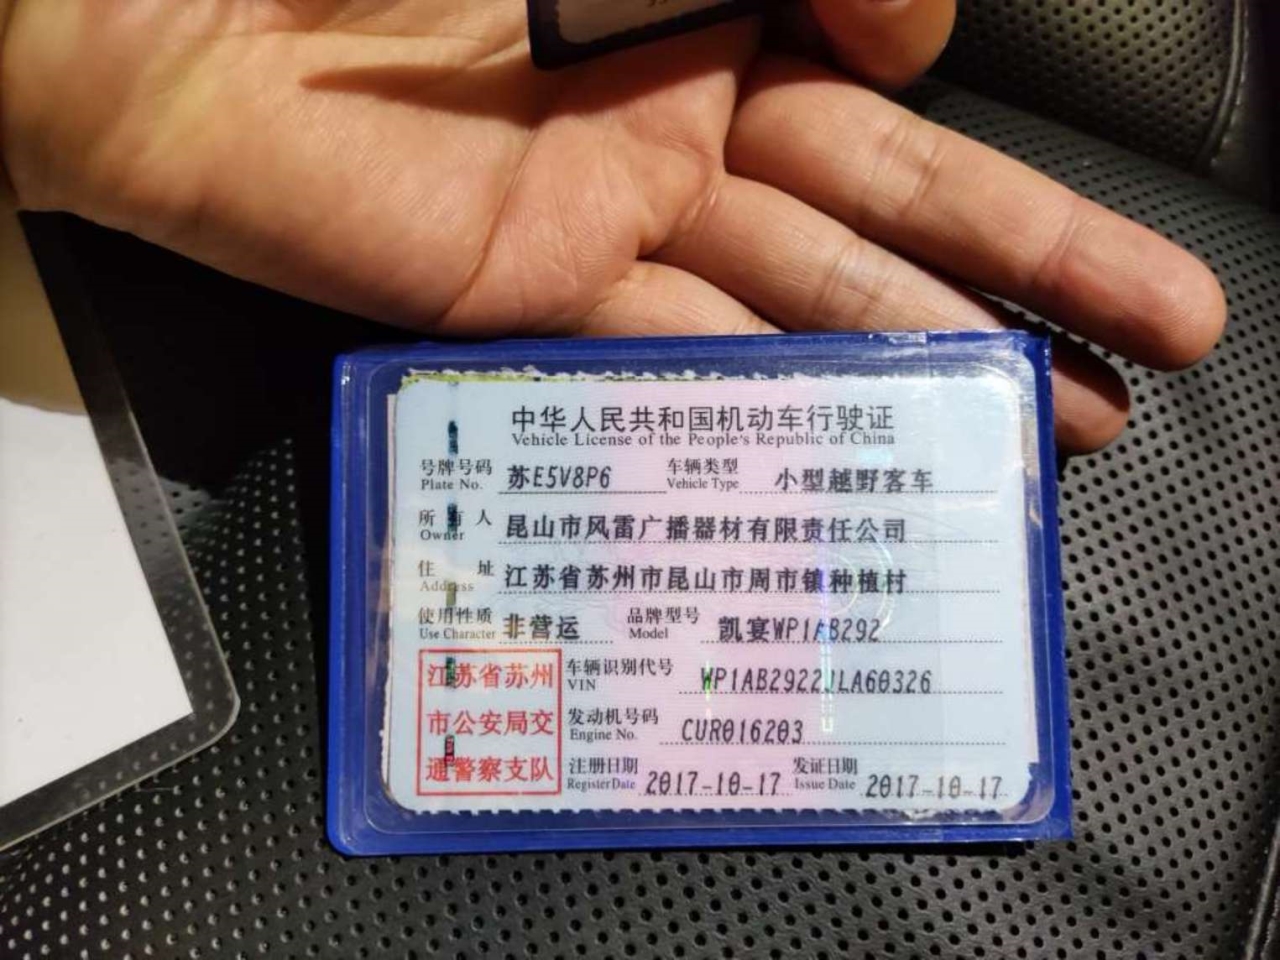 中华人民共和国机动车行驶证
Vehicle License of the People's Republic of China
号牌号码 苏E5V8P6 车辆类型 小型越野客车
Plate No. Vehicle Type
所有人 昆山市风雷广播器材有限责任公司
Owner
住址 江苏省苏州市昆山市周市镇种植村
Address
使用性质 非营运 品牌型号 凯宴WP1AB292
Use Character Model
江苏省苏州
市公安局交
通警察支队
车辆识别代号 WP1AB2922JLA60326
VIN
发动机号码 CUR016203
Engine No.
注册日期 2017-10-17 发证日期 2017-10-17
Register Date Issue Date